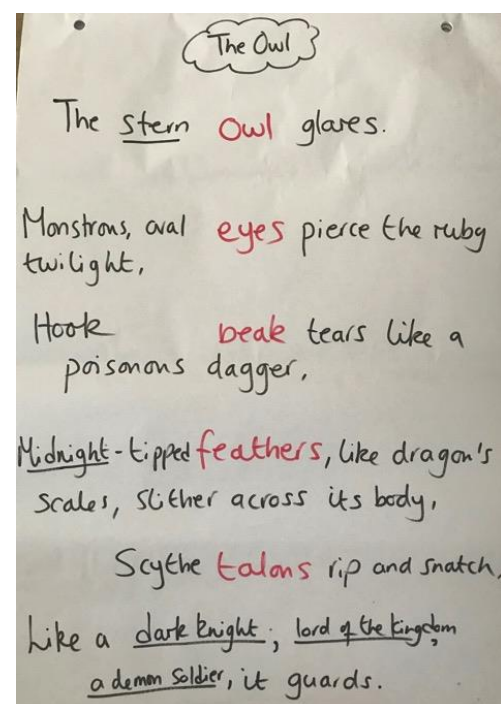 The Owl
The stern owl glares.
Monstrous, oval eyes pierce the ruby
twilight,
Hook beak tears like a
poisonous dagger,
Midnight-tipped feathers, like dragon's
scales, slither across its body,
Scythe talons rip and snatch,
Like a dark knight, lord of the kingdom,
a demon soldier, it guards.